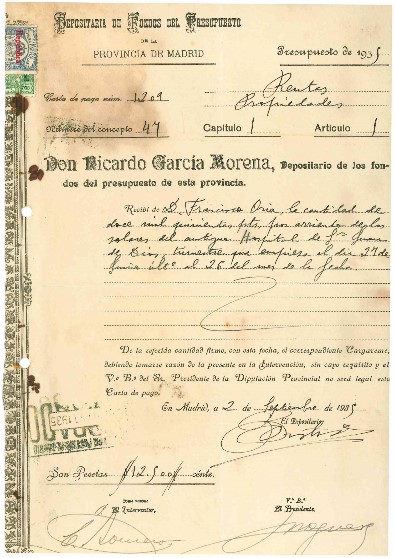 Depositaría de Fondos del Presupuesto
DE LA
PROVINCIA DE MADRID
Presupuesto de 1935
Rentas
Carta de pago núm. 1209
Propiedades
Número del concepto 47 Capítulo 1 Artículo 1
Don Ricardo García Morena, Depositario de los fon-
dos del presupuesto de esta provincia.
Recibí de D. Francisco Oria, la cantidad de
doce mil quinientas pts, por arriendo de los
solares del antiguo Hospital de Sn Juan
de Dios, trimestre que empieza el día 27 de
al 26 del mes de la fecha
De la referida cantidad firmo, con esta fecha, el correspondiente Cargareme,
debiendo tomarse razón de la presente en la Intervención, sin cuyo requisito y el
V.º B.º del Sr. Presidente de la Diputación Provincial no será legal esta
Carta de pago.
En Madrid, a 2 de Septiembre de 1935
El Depositario
1935
Son Pesetas #12.500# cénts.
TOMÉ RAZÓN:
El Interventor,
V.º B.º
El Presidente,